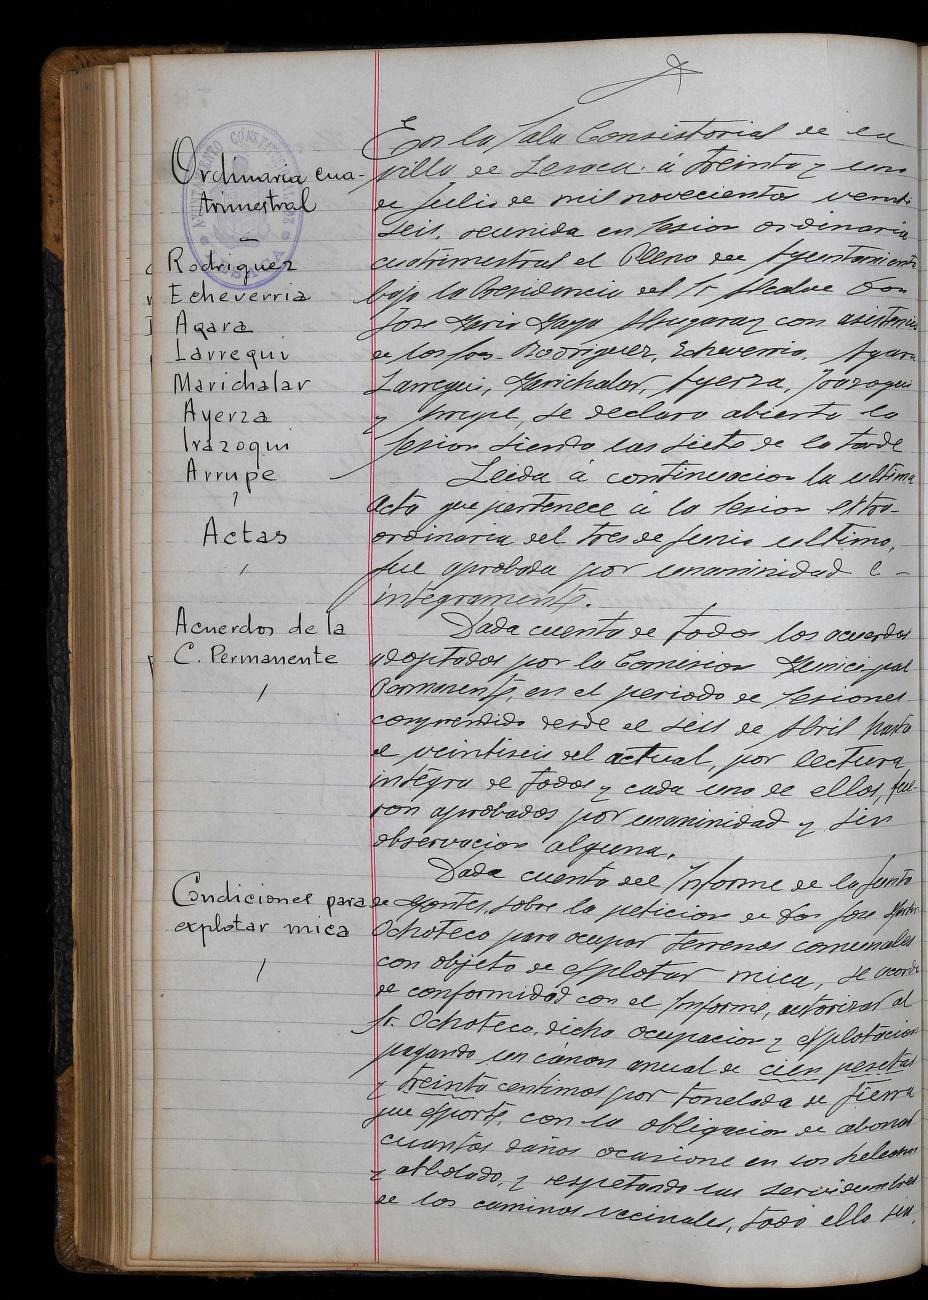 Ordinaria cua-
trimestral
Rodriguez
Echeverria
Agara
Larregui
Marichalar
Ayerza
Irazoqui
Arrupe
Actas
Acuerdos de la
C. Permanente
Condiciones para
explotar mica
En la Sala Consistorial de la
villa de Lesaca á treinta y uno
de Julio de mil novecientos veinti
seis, reunida en sesion ordinaria
cuatrimestral el Pleno del Ayuntamiento
bajo la Presidencia del Sr Alcalde Don
Jose Maria Maya con asistencia
de los Srs. Rodriguez, Echeverria, Agara
Larregui, Marichalar, Ayerza, Irazoqui
y Arrupe, se declara abierta la
sesion siendo las siete de la tarde
Leida á continuacion la ultima
Acta que pertenece á la sesion extra-
ordinaria del tres de Junio ultimo,
fue aprobada por unaminidad é
integramente.
Dada cuenta de todos los acuerdos
adoptados por la Comision Municipal
Permanente, en el periodo de sesiones
comprendido desde el seis de Abril hasta
el veintiseis del actual, por lectura
integra de todos y cada uno de ellos, fue-
ron aprobados por unaminidad y sin
observacion alguna.
Dada cuenta del Informe de la Junta
de Montes, sobre la peticion de Don Jose
Ochoteco para ocupar terrenos comunales
con objeto de explotar mica, se acordó
de conformidad con el Informe, autorizar al
Sr. Ochoteco, dicha ocupacion y explotacion
pagando un cánon anual de cien pesetas
y treinta centimos por tonelada de tierra
que exporte, con la obligacion de abonar
cuantos daños ocasione en los helechos
y arbolado, y respetando las servidumbres
de los caminos vecinales, todo ello sin